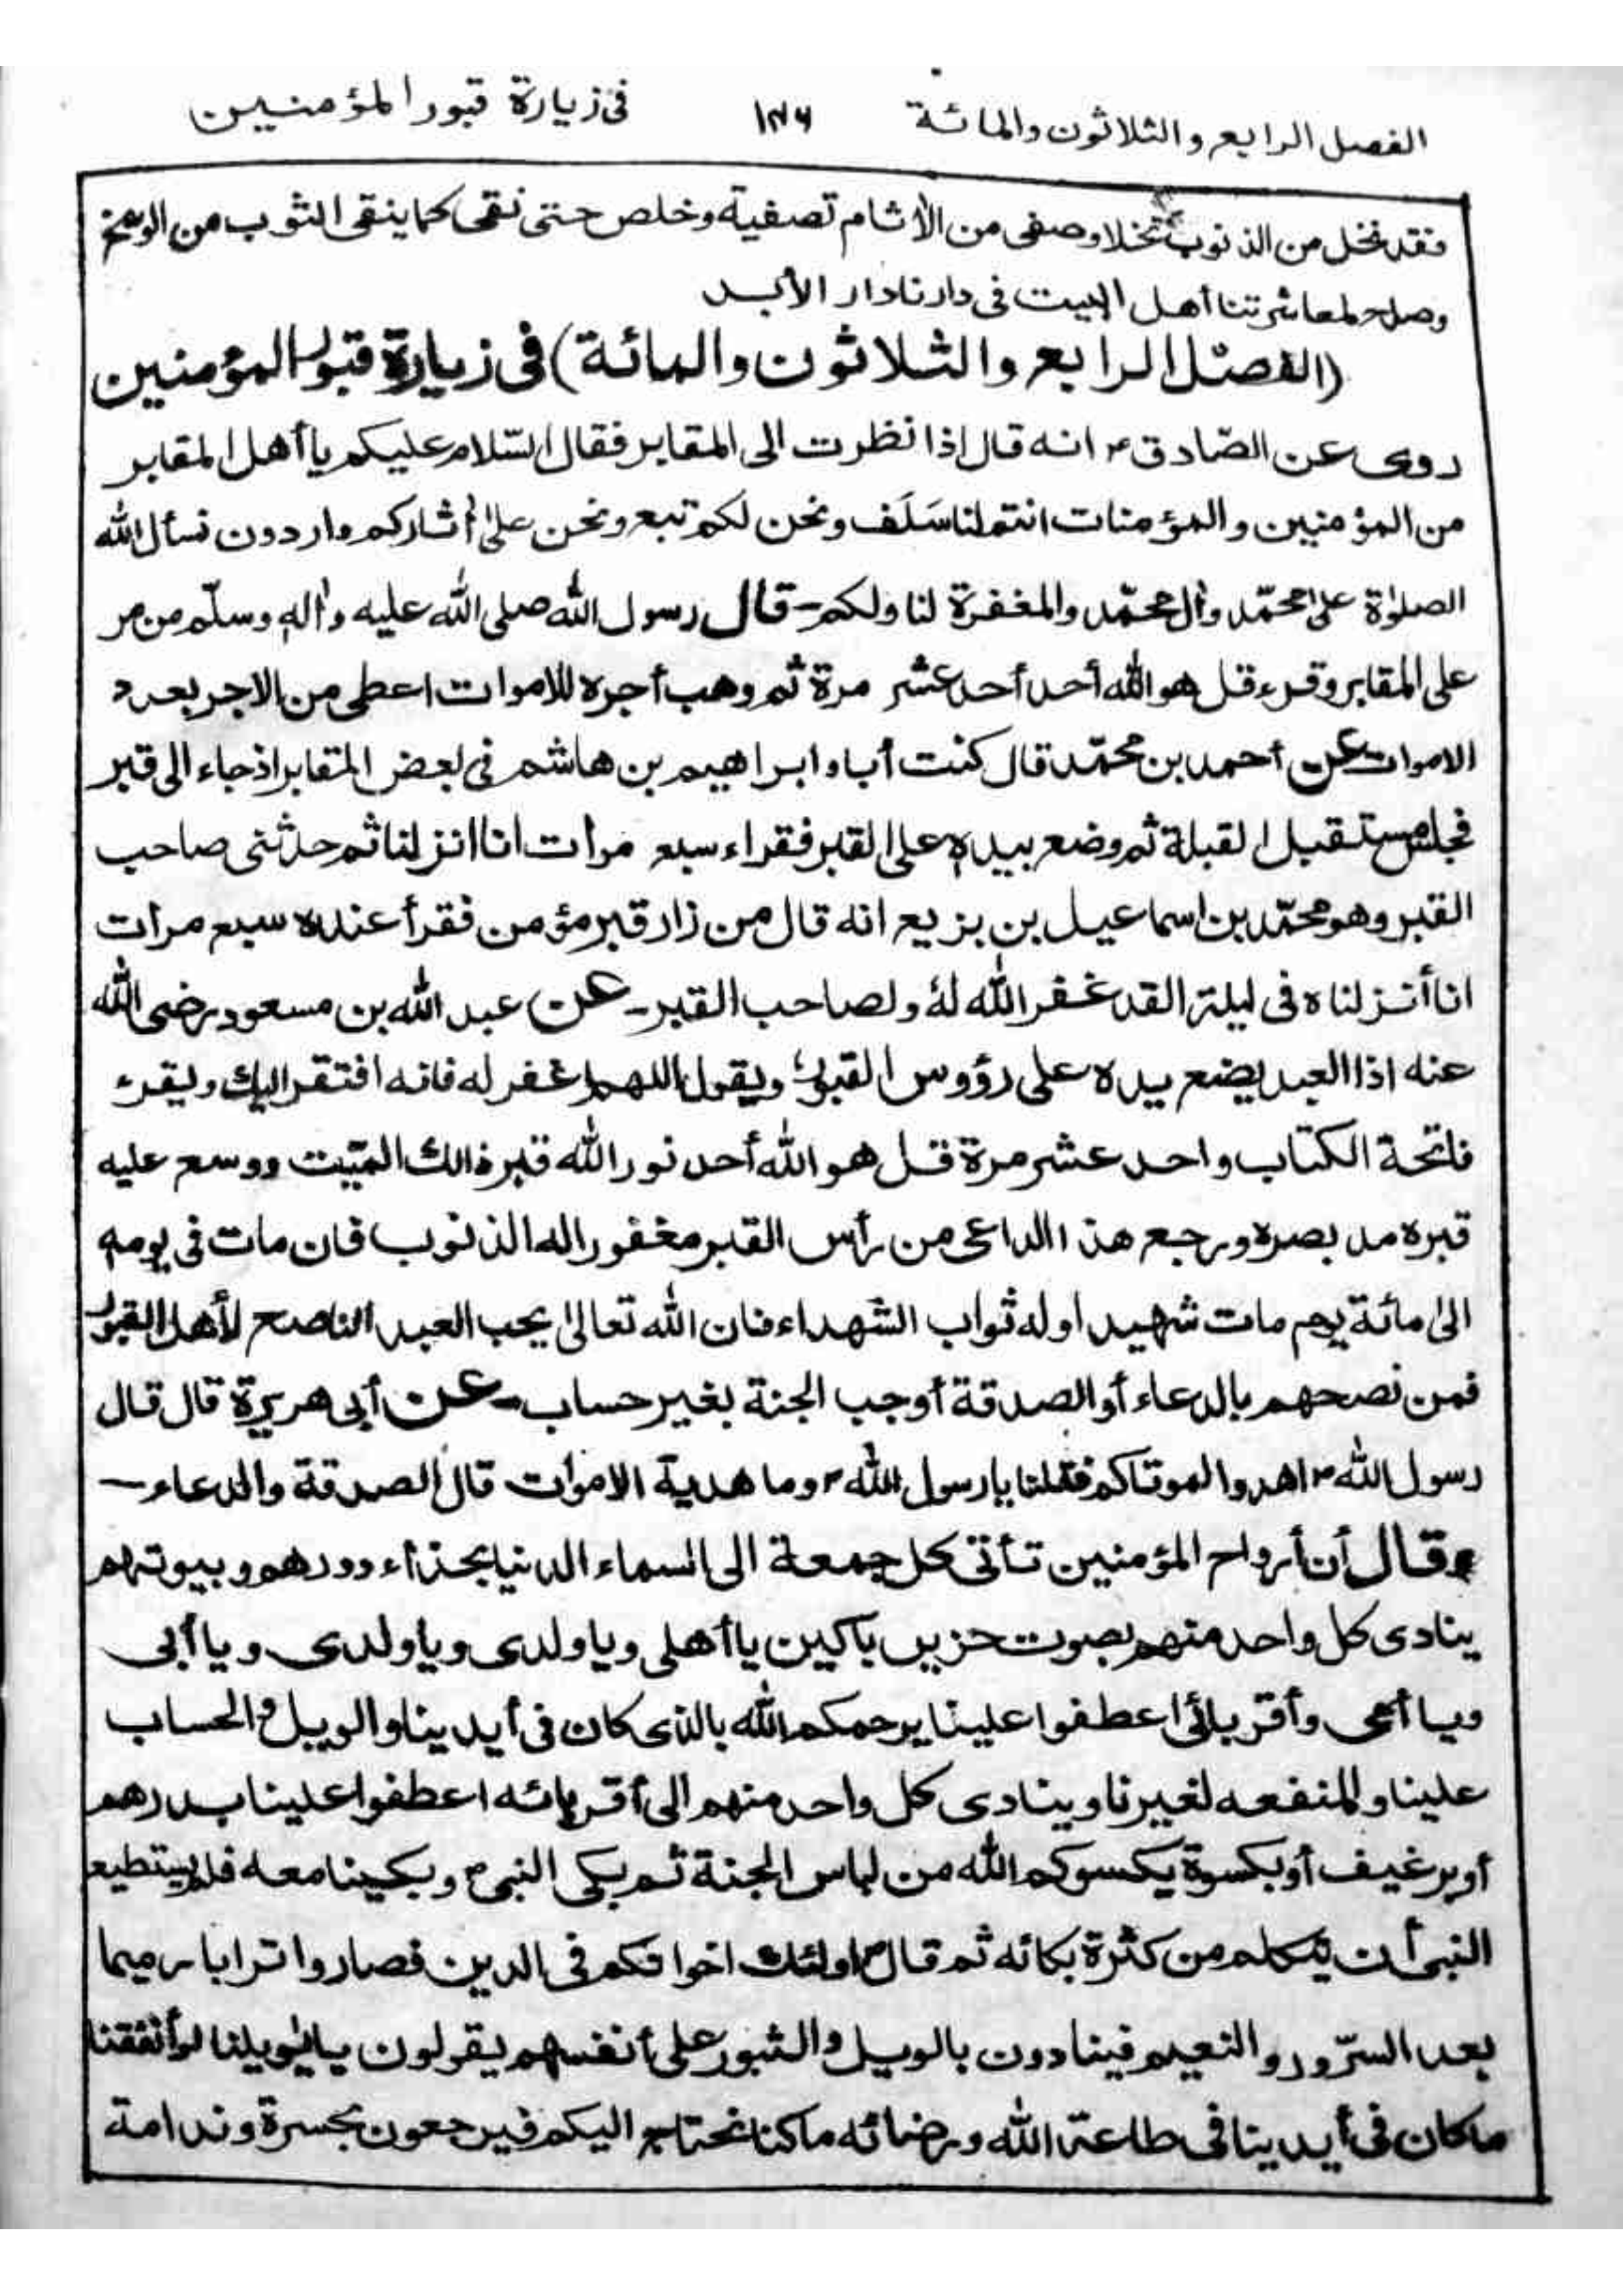 الفصل الرابع والثلاثون والمائة ١٧٦ فى زيارة قبور المؤمنين
فقد نخل من الذنوب نخلا وصفى من الأثام تصفية وخلص حتى نقى كما ينقى الثوب من الوسخ
وصلح لمعاشرتنا أهل البيت فى دارنا دار الأبد
(الفصل الرابع والثلاثون والمائة) فى زيارة قبور المؤمنين
روى عن الصّادق ع انه قال اذا نظرت الى المقابر فقال السّلام عليكم يا أهل المقابر
من المؤمنين والمؤمنات انتم لنا سَلَف ونحن لكم تبع ونحن على أثاركم واردون نسأل الله
الصلوٰة على محمّد وأل محمّد والمغفرة لنا ولكم - قال رسول الله صلى الله عليه وأله وسلّم من مر
على المقابر وقرء قل هو الله أحد أحد عشر مرة ثم وهب أجره للاموات اعطى من الاجر بعدد
الاموات عن أحمد بن محمّد قال كنت أبا وابراهيم بن هاشم فى بعض المقابر اذ جاء الى قبر
فجلس مستقبل القبلة ثم وضع بيده على القبر فقراء سبع مرات انا انزلنا ثم حدثنى صاحب
القبر وهو محمّد بن اسماعيل بن بزيع انه قال من زار قبر مؤمن فقرأ عنده سبع مرات
انا أنزلناه فى ليلة القدر غفر الله لهُ ولصاحب القبر - عن عبد الله بن مسعود رضى الله
عنه اذا العبد يضع يده على رؤوس القبور ويقول اللهم اغفر له فانه افتقر اليك ويقرء
فاتحة الكتاب واحد عشر مرة قل هو الله أحد نور الله قبر ذالك الميّت ووسع عليه
قبره مد بصره ورجع هذا الداعى من رأس القبر مغفورا له الذنوب فان مات فى يومه
الىٰ مائة يوم مات شهيدا وله ثواب الشهداء فان الله تعالىٰ يحب العبد الناصح لأهل القبور
فمن نصحهم بالدعاء أو الصدقة أوجب الجنة بغير حساب - عن أبى هريرة قال قال
رسول الله ص اهدوا لموتاكم فقلنا يا رسول الله ص وما هدية الاموات قال الصدقة والدعاء -
وقال أن أرواح المؤمنين تأتى كل جمعة الى السماء الدنيا بحذاء دورهم وبيوتهم
ينادى كل واحد منهم بصوت حزين باكين يا أهلى ويا ولدى ويا ولدى ويا أبى
ويا أمى وأقربائى اعطفوا علينا يرحمكم الله بالذى كان فى أيدينا والويل والحساب
علينا والمنفعه لغيرنا وينادى كل واحد منهم الى أقربائه اعطفوا علينا بدرهم
أو برغيف أو بكسوة يكسوكم الله من لباس الجنة ثم بكى النبى ص وبكينا معه فلم يستطيع
النبى أن يتكلم من كثرة بكائه ثم قال اولئك اخوانكم فى الدين فصاروا ترابا رميما
بعد السّرور والنعيم فينادون بالويل والثبور على أنفسهم يقولون يا ويلنا لو أنفقنا
ما كان فى أيدينا فى طاعة الله ورضائه ما كنا نحتاج اليكم فيرجعون بحسرة وندامة